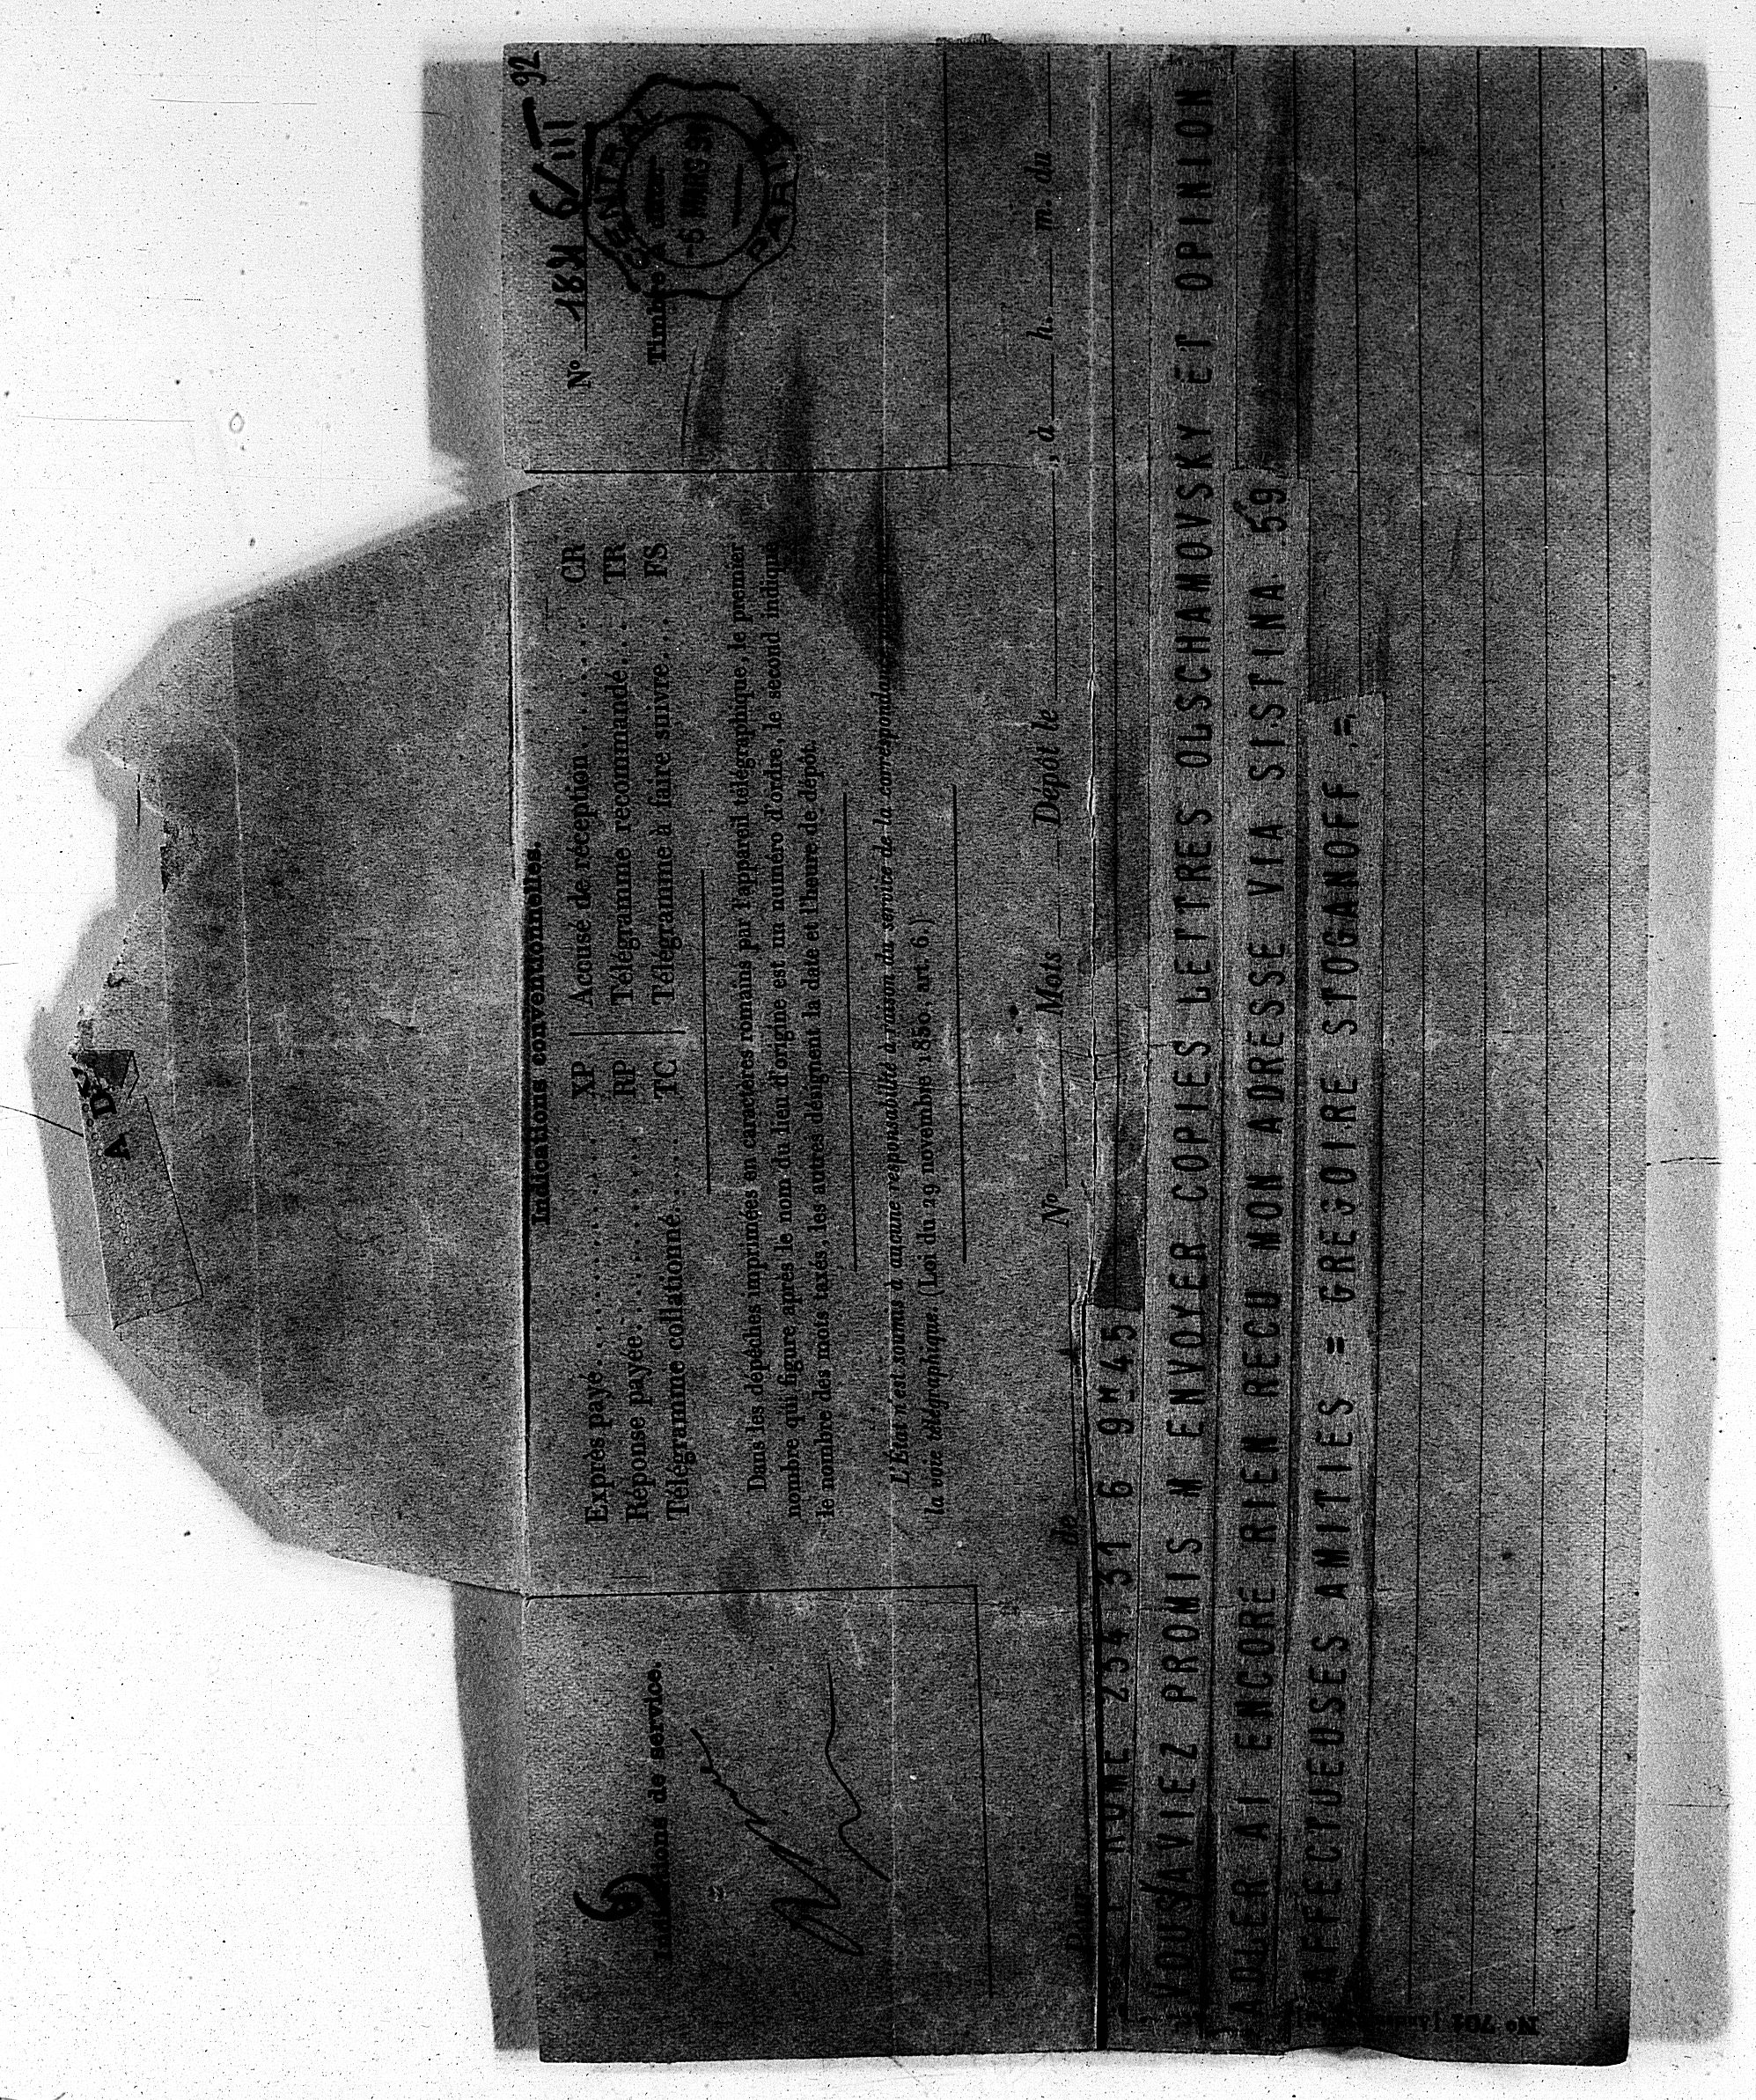 Nº 1821 6/III 92
Timbre à date
CENTRAL
-6 MARS 31
PARIS
A D
Indications de service.
Indications conventionnelles.
Exprès payé XP
Réponse payée RP
Télégramme collationné TC
Accusé de réception CR
Télégramme recommandé TR
Télégramme à faire suivre FS
Dans les dépêches imprimées en caractères romains par l'appareil télégraphique, le premier
nombre qui figure après le nom du lieu d'origine est un numéro d'ordre, le second indique
le nombre des mots taxés, les autres désignent la date et l'heure de dépôt.
L'État n'est soumis à aucune responsabilité à raison du service de la correspondance
la voie télégraphique. (Loi du 29 novembre 1850, art. 6.)
Pour de Nº Mots Dépôt le , à h. m. du
ROME 234 31 6 9H45
VOUS AVIEZ PROMIS M ENVOYER COPIES LETTRES OLSCHAMOVSKY ET OPINION
ADLER AI ENCORE RIEN RECU MON ADRESSE VIA SISTINA 59
AFFECTUEUSES AMITIES = GREGOIRE STOGANOFF .=
Nº 701